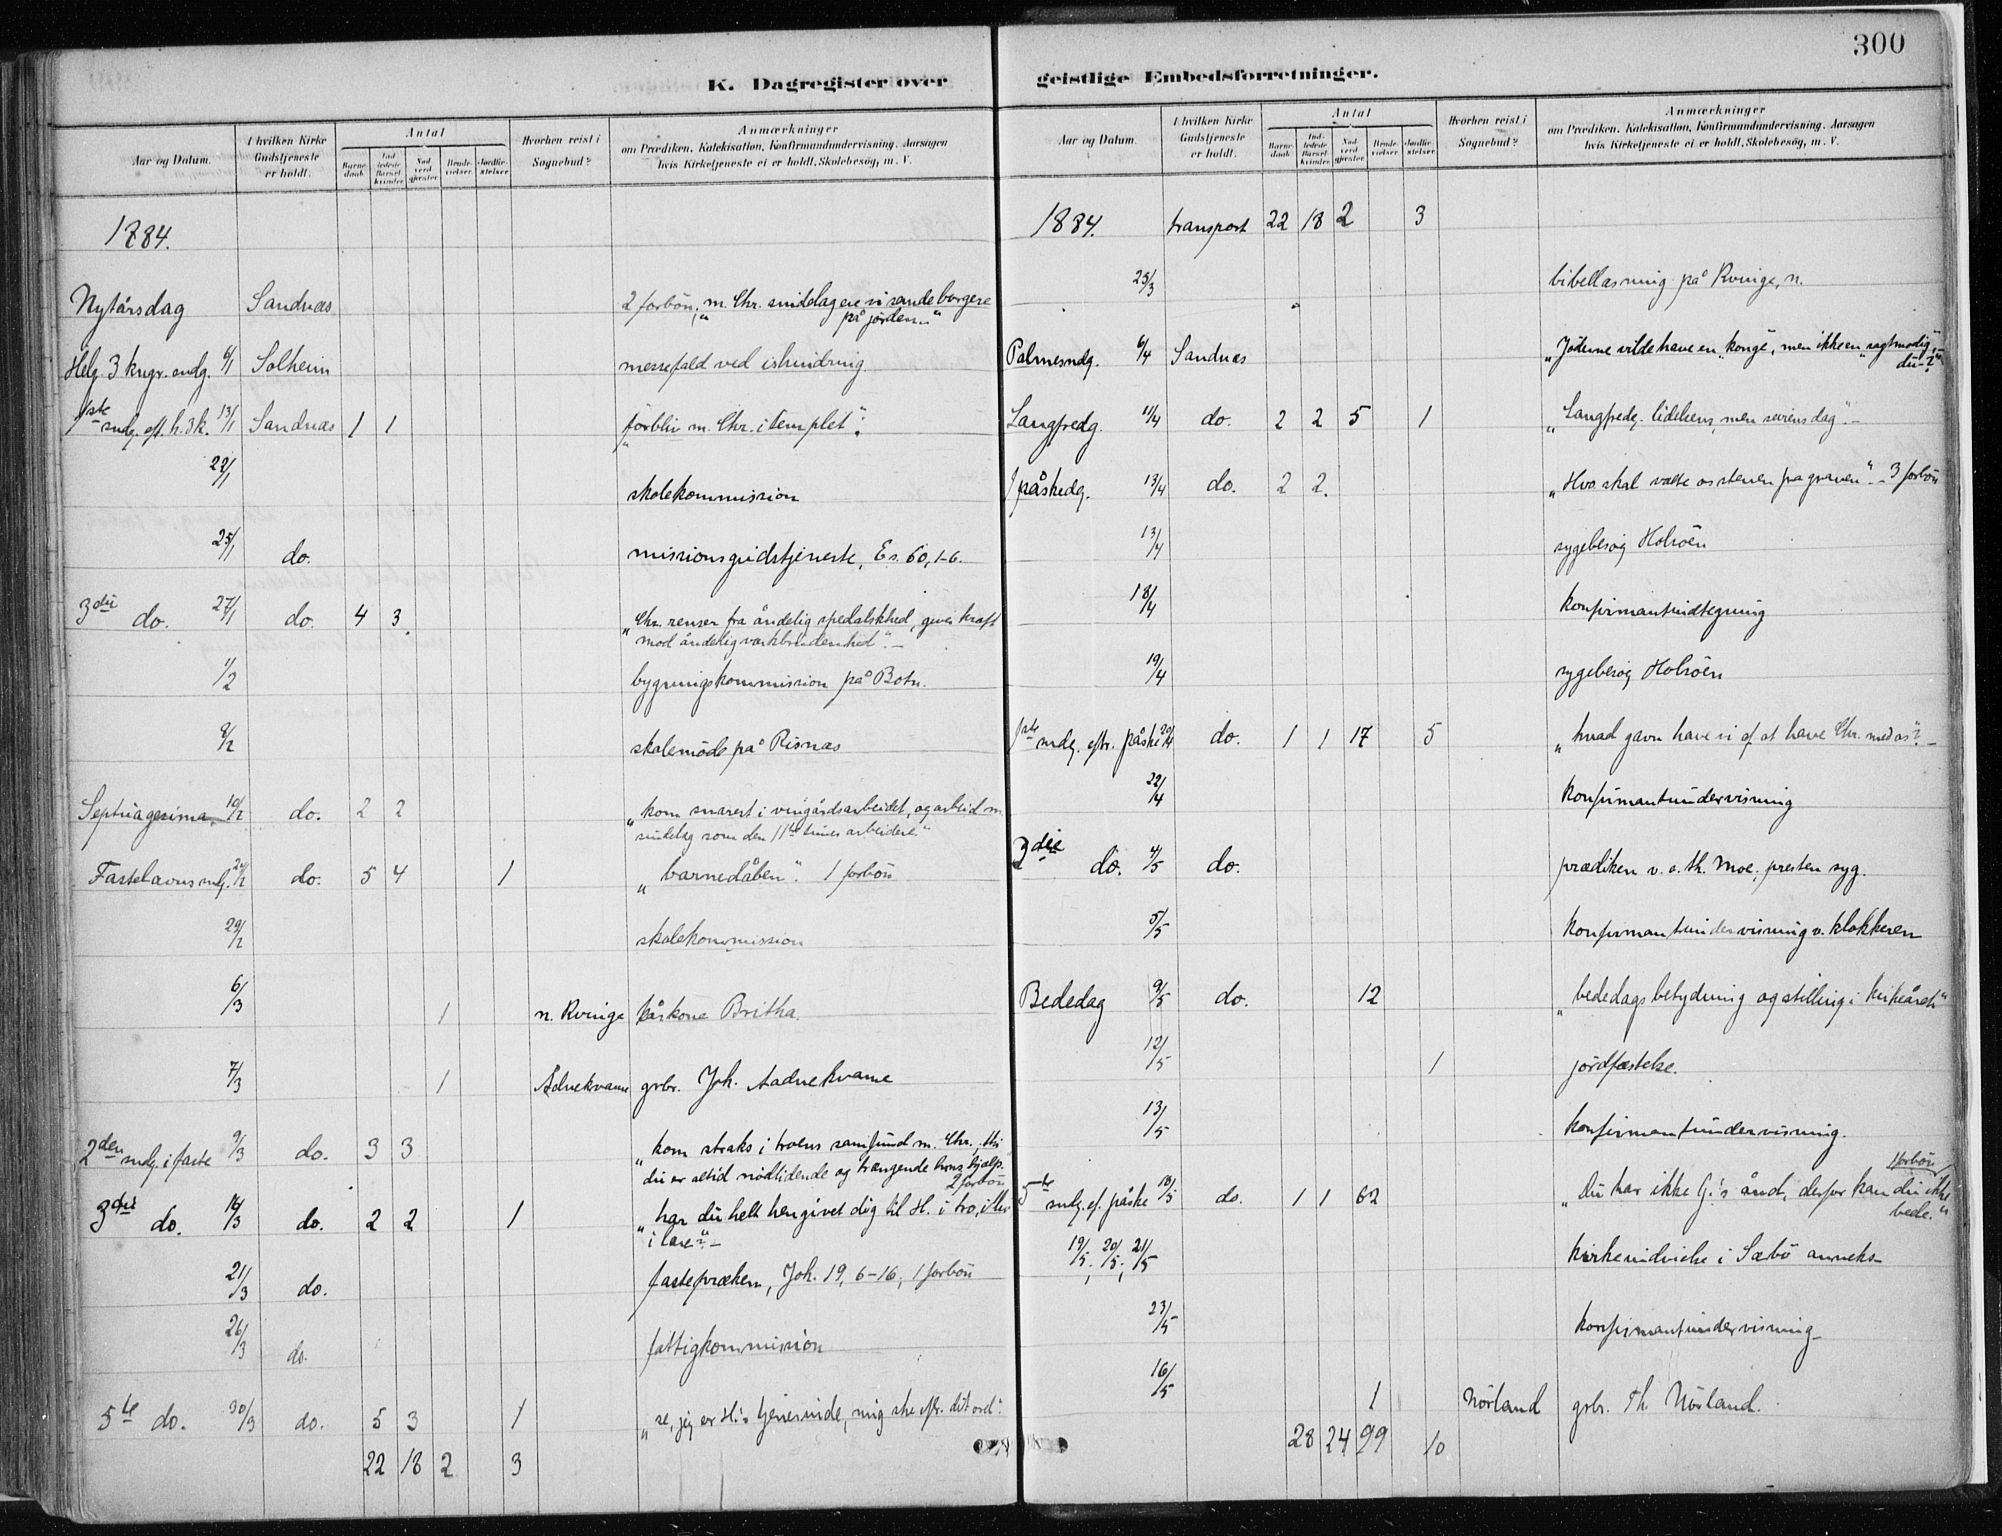 300
K. Dagregister over geistlige Embedsforretninger.
Aar og Datum. I hvilken Kirke Gudstjeneste er holdt. Antal Barnedaab Indledede Barselkvinder Nadverdgjester Brudevielser Jordfæstelser Hvorhen reist i Sognebud? Anmærkninger om Prædiken, Katekisation, Konfirmandundervisning, Aarsagen hvis Kirketjeneste ei er holdt, Skolebesög, m. V.
1884.
Nytårsdag Sandnæs 2 forbön, „m. Chr. sindelag ere vi sande borgere
på jorden“
Helg. 3 kngr. sndg. 6/1 Solheim messefald ved ishindring
1ste sndg. eft. h. 3 k. 13/1 Sandnæs 1 1 „forbliv m. Chr. i templet“.
22/1 skolekommission
25/1 do. missionsgudstjeneste, Es. 60, 1-6.
3die do. 27/1 do. 4 3. „Chr. renser fra åndelig spedalskhed, giver kraft
mod åndelig værkbrudenhed“. –
1/2 bygningskommission på Botn.
8/2 skolemöde på Risnæs
Septuagesima. 10/2 do. 2 2 „kom snarest i vingårdsarbeidet, og arbeid m.
sindelag som den 11te times arbeidere“
Fastelavns sndg. 24/2 do. 5 4 1 „barnedåben“. 1 forbön
29/2 skolekommission
6/3 1 n. Kvinge kårkone Britha.
7/3 1 Adnekvame grbr. Joh. Aadnekvame
2den sndg. i faste 9/3 do. 3 3 „kom straks i troens samfund m. Chr., thi
du er altid nödlidende og trængende hans hjælp“
2 forbön
3die do. 16/3 do. 2 2 1 „har du helt hengivet dig til H. i tro, i liv
i lære?“ –
21/3 do. fastepræken, Joh. 19, 6-16, 1 forbön
26/3 do. fattigkommission
5te do. 30/3 do. 5 3 1 „se, jeg er H.'s tjenerinde, mig ske efter dit ord“.
22 18 2 3
Aar og Datum. I hvilken Kirke Gudstjeneste er holdt. Antal Barnedaab Indledede Barselkvinder Nadverdgjester Brudevielser Jordfæstelser Hvorhen reist i Sognebud? Anmærkninger om Prædiken, Katekisation, Konfirmandundervisning, Aarsagen hvis Kirketjeneste ei er holdt, Skolebesög, m. V.
1884. transport 22 18 2 3
25/3 bibellæsning på Kvinge, n.
Palmesndg. 6/4 Sandnæs „Jöderne vilde have en „konge“, men ikke en „sagtmodig“, –
du – ?“
Langfredg. 11/4 do. 2 2 5 1 „Langfredg. lidelsens, men seirens dag“. –
1 påskedg. 13/4 do. 2 2. „Hvo skal vælte os stenen fra graven“. – 3 forbön
13/4 sygebesög Holsöen
18/4 konfirmantindtegning
19/4 sygebesög Holsöen
1ste sndg. eftr. påske 20/4 do. 1 1 17 5 „hvad gavn have vi af at have Chr. med os?“ –
22/4 konfirmantundervisning
3die do. 4/5 do. prædiken v. c. th. Moe, presten syg.
5/5 konfirmantundervisning v. klokkeren
Bededag 9/5 do. 12 „bededags betydning og stilling i kirkeåret“
12/5 1 jordfæstelse.
13/5 konfirmantundervisning.
5te sndg. ef. påske 18/5 do. 1 1 62 „Du har ikke G.'s ånd, derfor kan du ikke
1 forbön
bede.“
19/5, 20/5, 21/5 kirkeindvielse i Sæbö anneks
23/5 konfirmantundervisning
16/5 1 Nörland grbr. Th. Nörland.
28 24 99 10